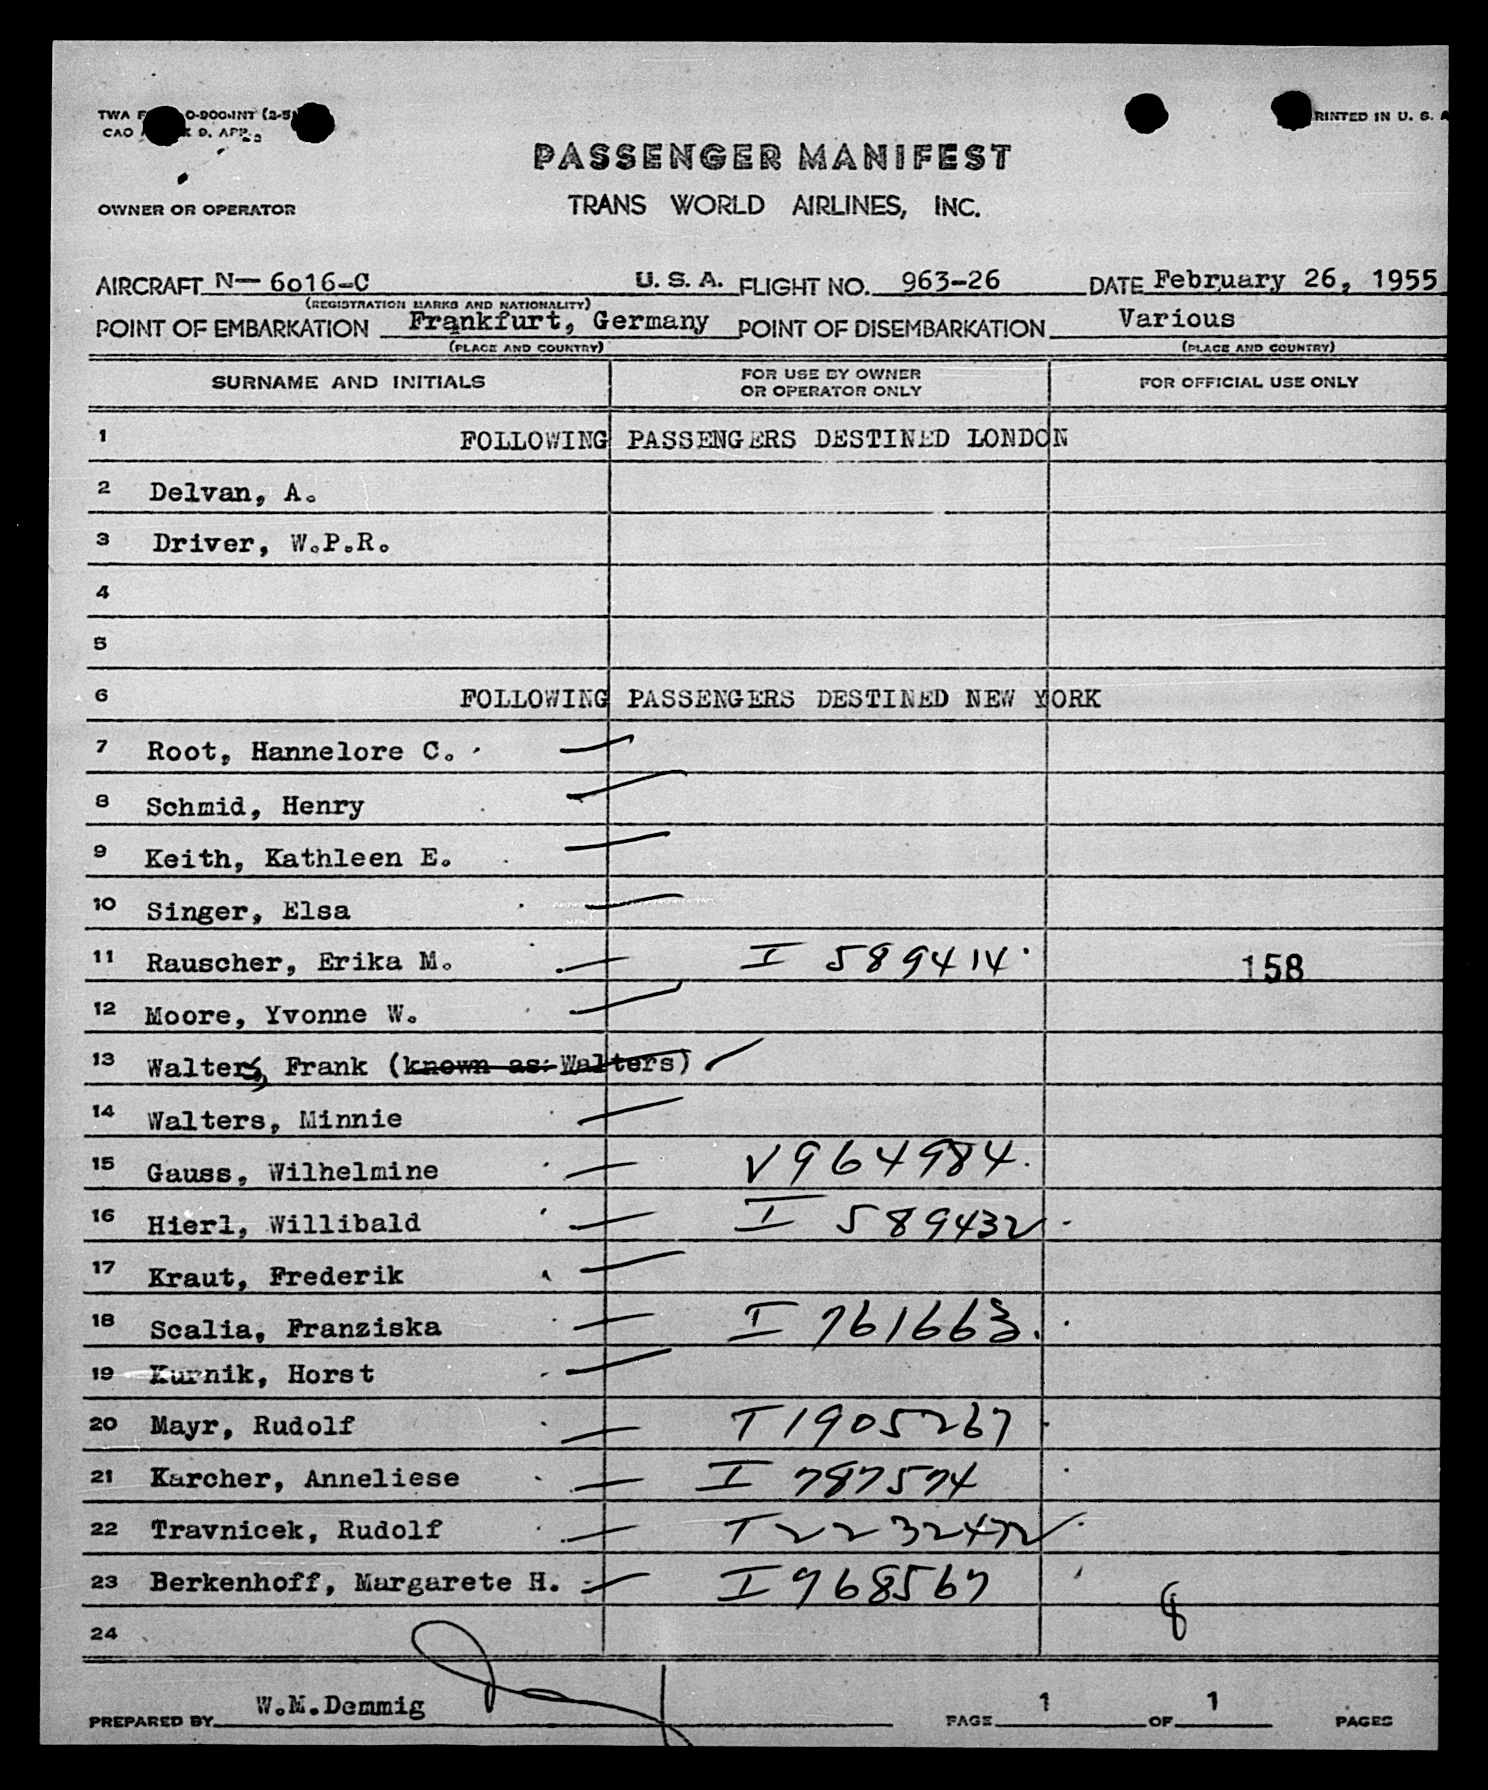 PASSENGER MANIFEST
OWNER OR OPERATOR TRANS WORLD AIRLINES, INC.
PRINTED IN U. S. A
AIRCRAFT N— 6016-C U. S. A. FLIGHT NO. 963-26 DATE February 26, 1955
(REGISTRATION MARKS AND NATIONALITY)
POINT OF EMBARKATION Frankfurt, Germany POINT OF DISEMBARKATION Various
(PLACE AND COUNTRY) (PLACE AND COUNTRY)
SURNAME AND INITIALS FOR USE BY OWNER OR OPERATOR ONLY FOR OFFICIAL USE ONLY
1 FOLLOWING PASSENGERS DESTINED LONDON
2 Delvan, A.
3 Driver, W.P.R.
4
5
6 FOLLOWING PASSENGERS DESTINED NEW YORK
7 Root, Hannelore C.
8 Schmid, Henry
9 Keith, Kathleen E.
10 Singer, Elsa
11 Rauscher, Erika M. I 589414 158
12 Moore, Yvonne W.
13 Walters, Frank (known as: Walters)
14 Walters, Minnie
15 Gauss, Wilhelmine V964984
16 Hierl, Willibald I 589432
17 Kraut, Frederik
18 Scalia, Franziska I 761663
19 Kurnik, Horst
20 Mayr, Rudolf T1905267
21 Karcher, Anneliese I 787574
22 Travnicek, Rudolf T2232472
23 Berkenhoff, Margarete H. I968567
24
PREPARED BY W.M.Demmig PAGE 1 OF 1 PAGES